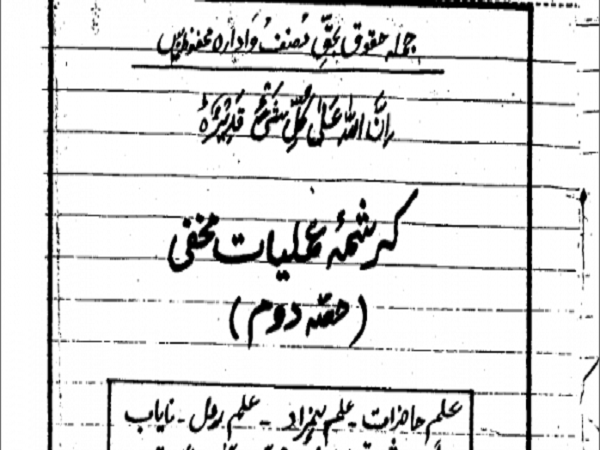 جملہ حقوق بحقِّ مُصنف وَادارہ محفوظ ہیں
اِنَّ اللہَ عَلٰی کُلِّ شَیْءٍ قَدِیْرٌ ط
کرشمۂ عملیات مخفی
(حصّہ دوم)
علم حاضرات - علم ہمزاد - علم رمل - نایاب